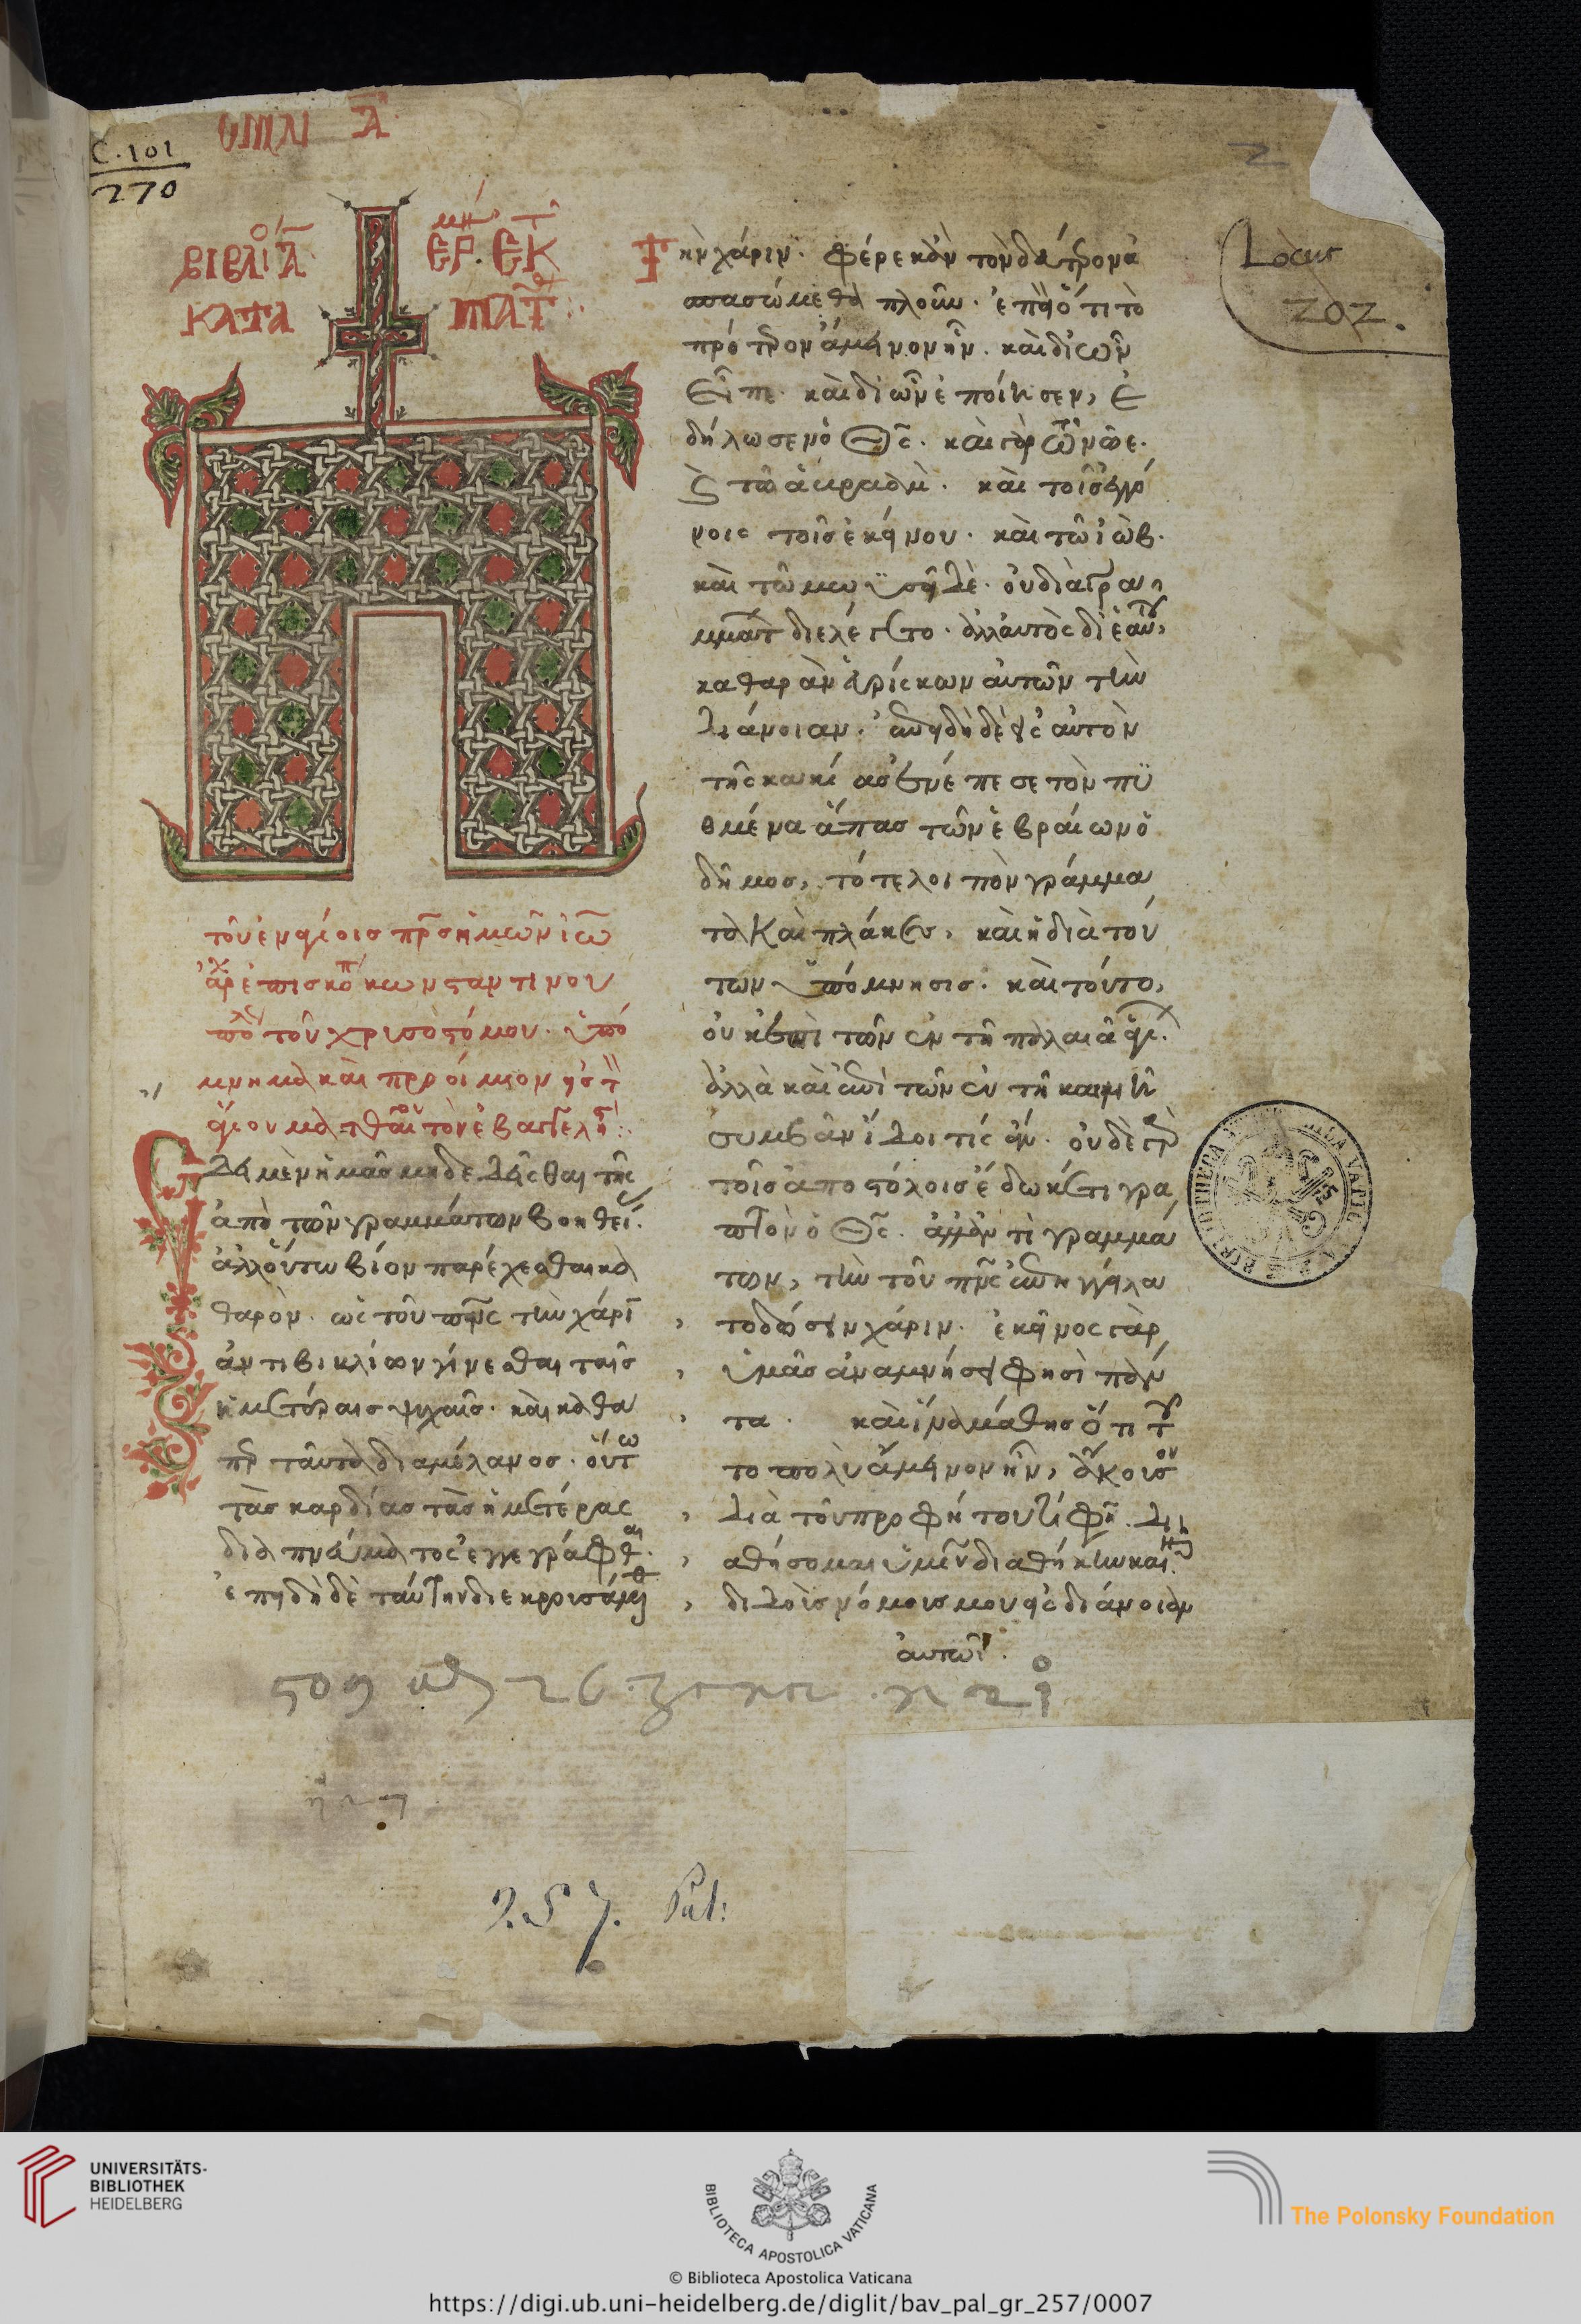 ὁμιλι α
C. 101
270
2
Locus
202.
βιβλίο α ἑρμη ἐκ τ
κατὰ Ματθ
τοῦ ἐν ἁγίοις πρς ἡμῶν ἰω
ἀρχεπισκοπ κωνσταντινου
πόλ τοῦ χρισοστόμου. ὑπό
μνημα καὶ προοίμιον εἰς τ
ἅγιον ματθαῖον τὸν εὐαγγελιστ
Ἔδει μὲν ἡμᾶς μηδὲ δεῖσθαι τῆς
ἀπὸ τῶν γραμμάτων βοηθεί.
ἀλλ οὕτω βίον παρέχεσθαι κα
θαρὸν. ὡς τοῦ πνς τὴν χάρι
ἀντι βικλίων γίνεσθαι ταῖς
ἡμετέραις ψυχαῖς. καὶ καθα
περ ταῦτα δια μέλανος. οὕτω
τὰς καρδίας τὰς ἡμετέρας
δια πνεύματος ἐγγεγράφθαι.
ἐπειδὴ δὲ ταύτην διεκρουσάμεθ
τὴν χάριν. φέρε κἂν τὸν δεύτερον ἀ
σπασώμεθα πλοῦν. ἐπεὶ ὅτι τὸ
πρότερον ἄμεινον ἦν. καὶ δι ὧν
εἶπε. καὶ δι ὧν ἐποίησεν, ἐ
δήλωσεν ὁ Θς. καὶ γὰρ τῶ νῶε.
καὶ τῶ ἀβρααμ. καὶ τοῖς ἐγγό
νοις τοῖς ἐκείνου. καὶ τῶ ἰώβ.
καὶ τῶ μωϋσῆ δὲ. οὐ διὰ γρα
μμάτ διελέγετο. ἀλλ αὐτὸς δι ἑαυτοῦ,
καθαρὰν εὑρίσκων αὐτῶν τὴν
διάνοιαν. ἐπειδὴ δὲ εἰς αὐτὸν
τῆς κακίας ἐνέπεσε τὸν πυ
θμένα ἅπας τῶν ἑβραίων ὁ
δῆμος, τότε λοιπὸν γράμμα
τα καὶ πλάκες, καὶ ἡ διὰ τού
των ὑπόμνησις. καὶ τοῦτο,
οὐκ ἐπὶ τῶν ἐν τῆ παλαιᾶ ἁγί.
ἀλλὰ καὶ ἐπὶ τῶν ἐν τῆ καινῆ
συμβὰν ἴδοι τίς ἄν. οὐδὲ γὰρ
τοῖς ἀποστόλοις ἔδωκέ τι γρα
πτὸν ὁ Θς. ἀλλ ἀντὶ γραμμά
των, τὴν τοῦ πνς ἐπηγγείλα
το δώσειν χάριν. ἐκεῖνος γὰρ
ὑμᾶς ἀναμνήσει φησὶ πάν
τα. καὶ ἵνα μάθης ὅτι τοῦ
το πολὺ ἄμεινον ἦν, ἄκουσον
διὰ τοῦ προφήτου τί φη. δι
αθήσομαι ὑμῖν διαθήκην καιν
διδοὺς νόμους μου εἰς διάνοιαν
αὐτῶν.
257. Pal:
BIBLIOTHECA VATIC
UNIVERSITÄTS-
BIBLIOTHEK
HEIDELBERG
BIBLIOTECA APOSTOLICA VATICANA
The Polonsky Foundation
© Biblioteca Apostolica Vaticana
https://digi.ub.uni-heidelberg.de/diglit/bav_pal_gr_257/0007